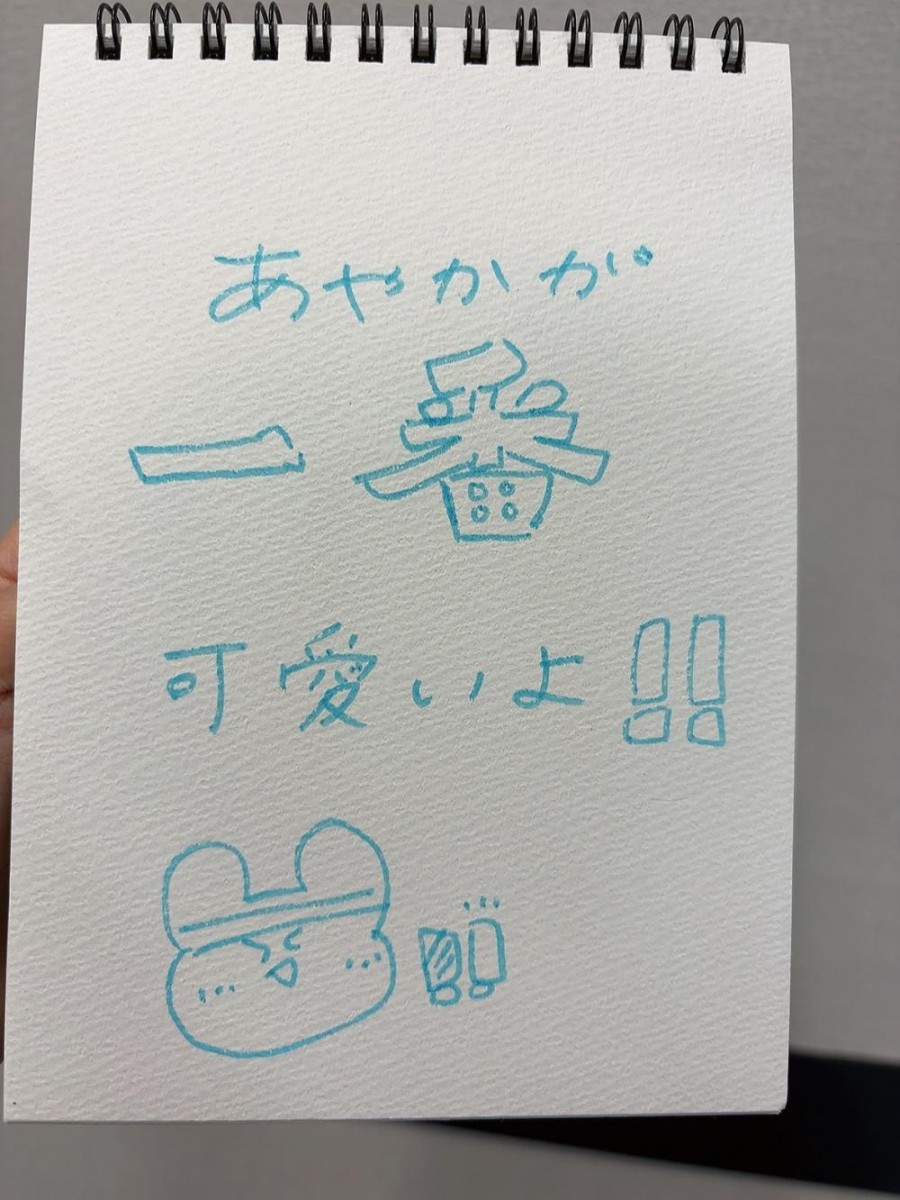 あやかが
一番
可愛いよ!!
!!